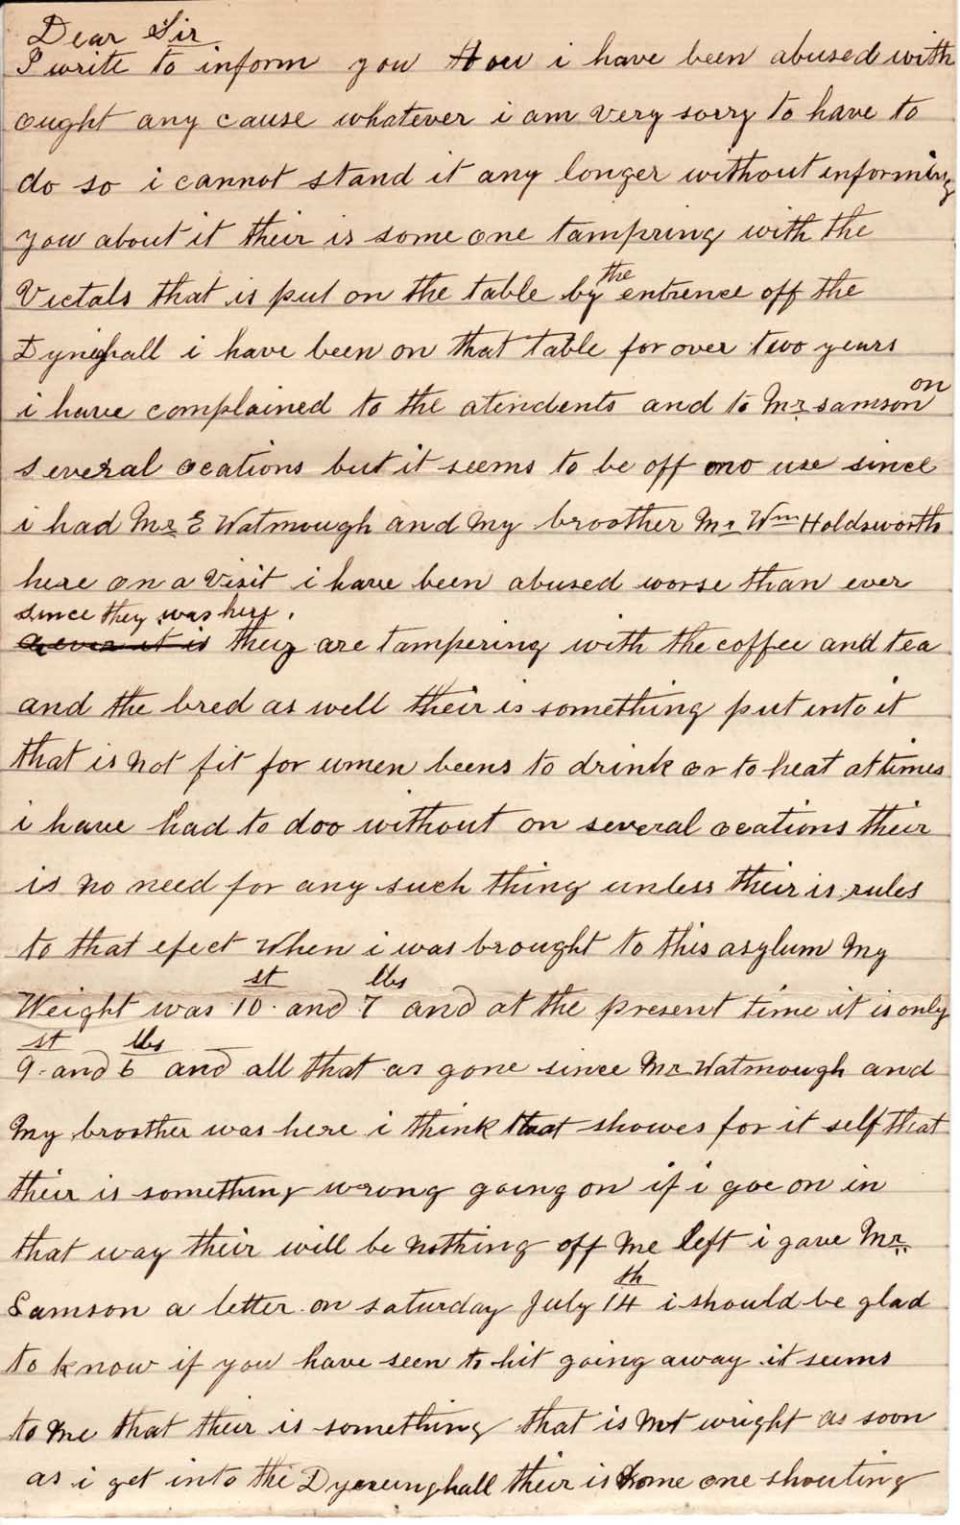 Dear Sir
I write to inform you How i have been abused with
ought any cause whatever i am very sorry to have to
do so i cannot stand it any longer without informing
you about it their is some one tampring with the
Victals that is put on the table by the entrence off the
Dyninghall i have been on that table for over two years
i have complained to the atendents and to Mr samson on
several ocations but it seems to be off no use since
i had Mr E Watmough and My broother Mr Wm Holdsworth
here on a Visit i have been abused worse than ever
since they was here.
their are tampering with the coffee and tea
and the bred as well their is something put into it
that is Not fit for umen beens to drink or to heat at times
i have had to doo without on several ocations their
is no need for any such thing unless their is rules
to that efect When i was brought to this asylum My
Weight was 10 st and 7 lbs and at the present time it is only
9 st and 6 lbs and all that as gone since Mr Watmough and
My broother was here i think that showes for it self that
their is something wrong going on if i goe on in
that way their will be Nothing off Me left i gave Mr
Samson a letter on saturday July 14th i should be glad
to know if you have seen to hit going away it seems
to Me that their is something that is Not wright as soon
as i get into the their is some one shouting